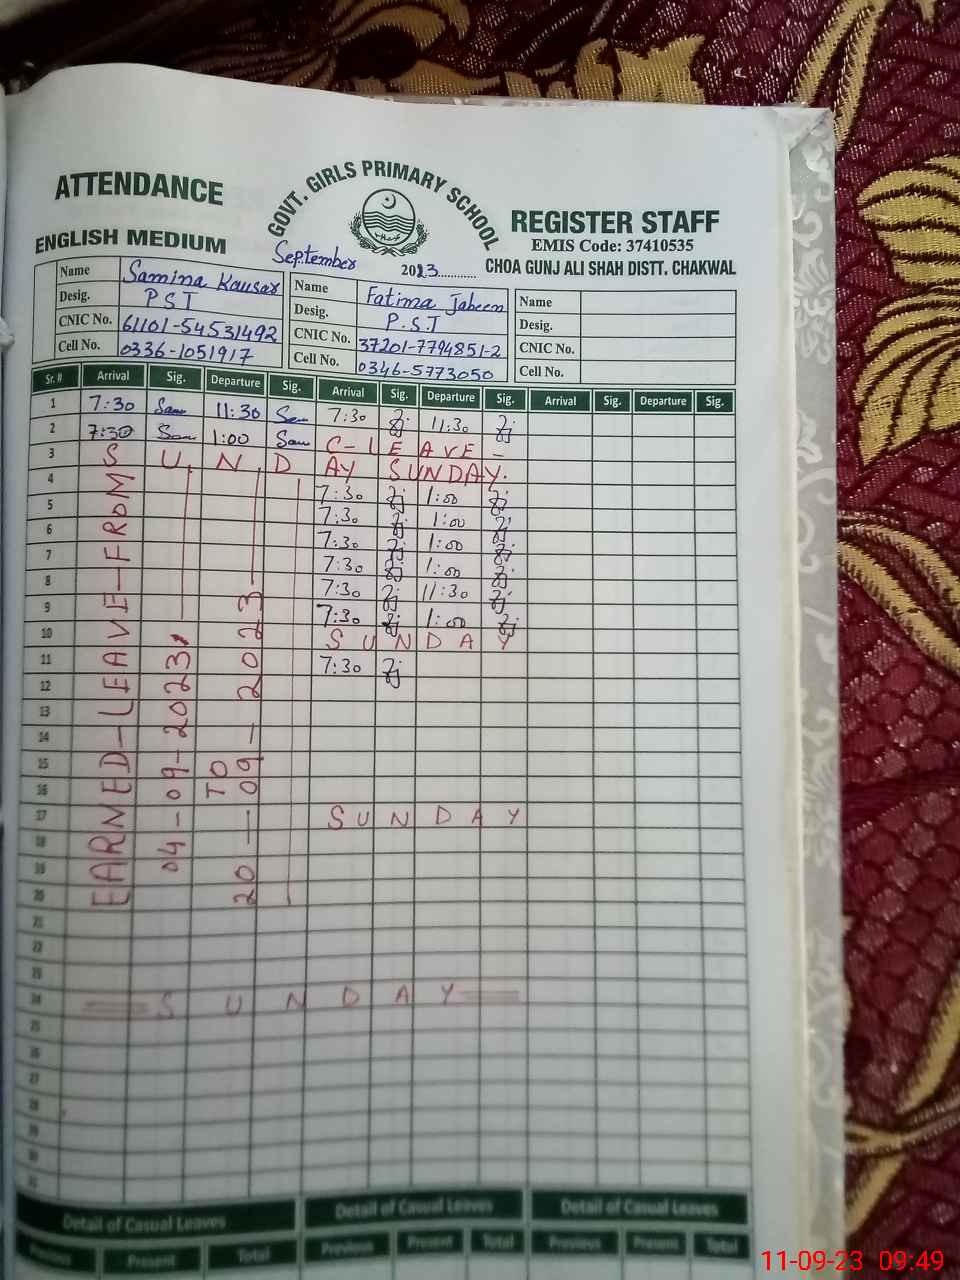 ATTENDANCE
GOVT. GIRLS PRIMARY SCHOOL
REGISTER STAFF
ENGLISH MEDIUM
EMIS Code: 37410535
September 2023
CHOA GUNJ ALI SHAH DISTT. CHAKWAL
Name Samina Kousar Name Fatima Jabeen Name
Desig. PST Desig. P.S.T Desig.
CNIC No. 61101-54531492 CNIC No. 37201-7794851-2 CNIC No.
Cell No. 0336-1051917 Cell No. 0346-5773050 Cell No.
Sr.# Arrival Sig. Departure Sig. Arrival Sig. Departure Sig. Arrival Sig. Departure Sig.
1 7:30 Sam 11:30 Sam 7:30 11:30
2 7:30 Sam 1:00 Sam C-LEAVE -
3 SUNDAY SUNDAY.
4 7:30 1:00
5 7:30 1:00
6 7:30 1:00
7 7:30 1:00
8 7:30 11:30
9 7:30 1:00
10 SUNDAY
11 7:30
12
13
14
15
16
17 SUNDAY
18
19
20
EARNED-LEAVE-FROM
04-09-2023
TO
20-09-2023
21
22
23
24 SUNDAY
25
26
27
28
29
30
31
Detail of Casual Leaves Detail of Casual Leaves Detail of Casual Leaves
Previous Present Total Previous Present Total Previous Present Total
11-09-23 09:49